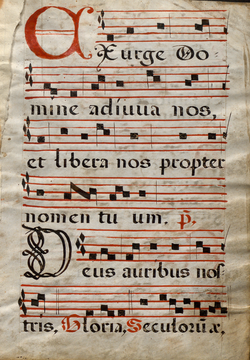 Exurge Do-
mine adiuua nos,
et libera nos propter
nomen tu um. p̄.
Deus auribus nos-
tris, Gloria, Seculorū æ,